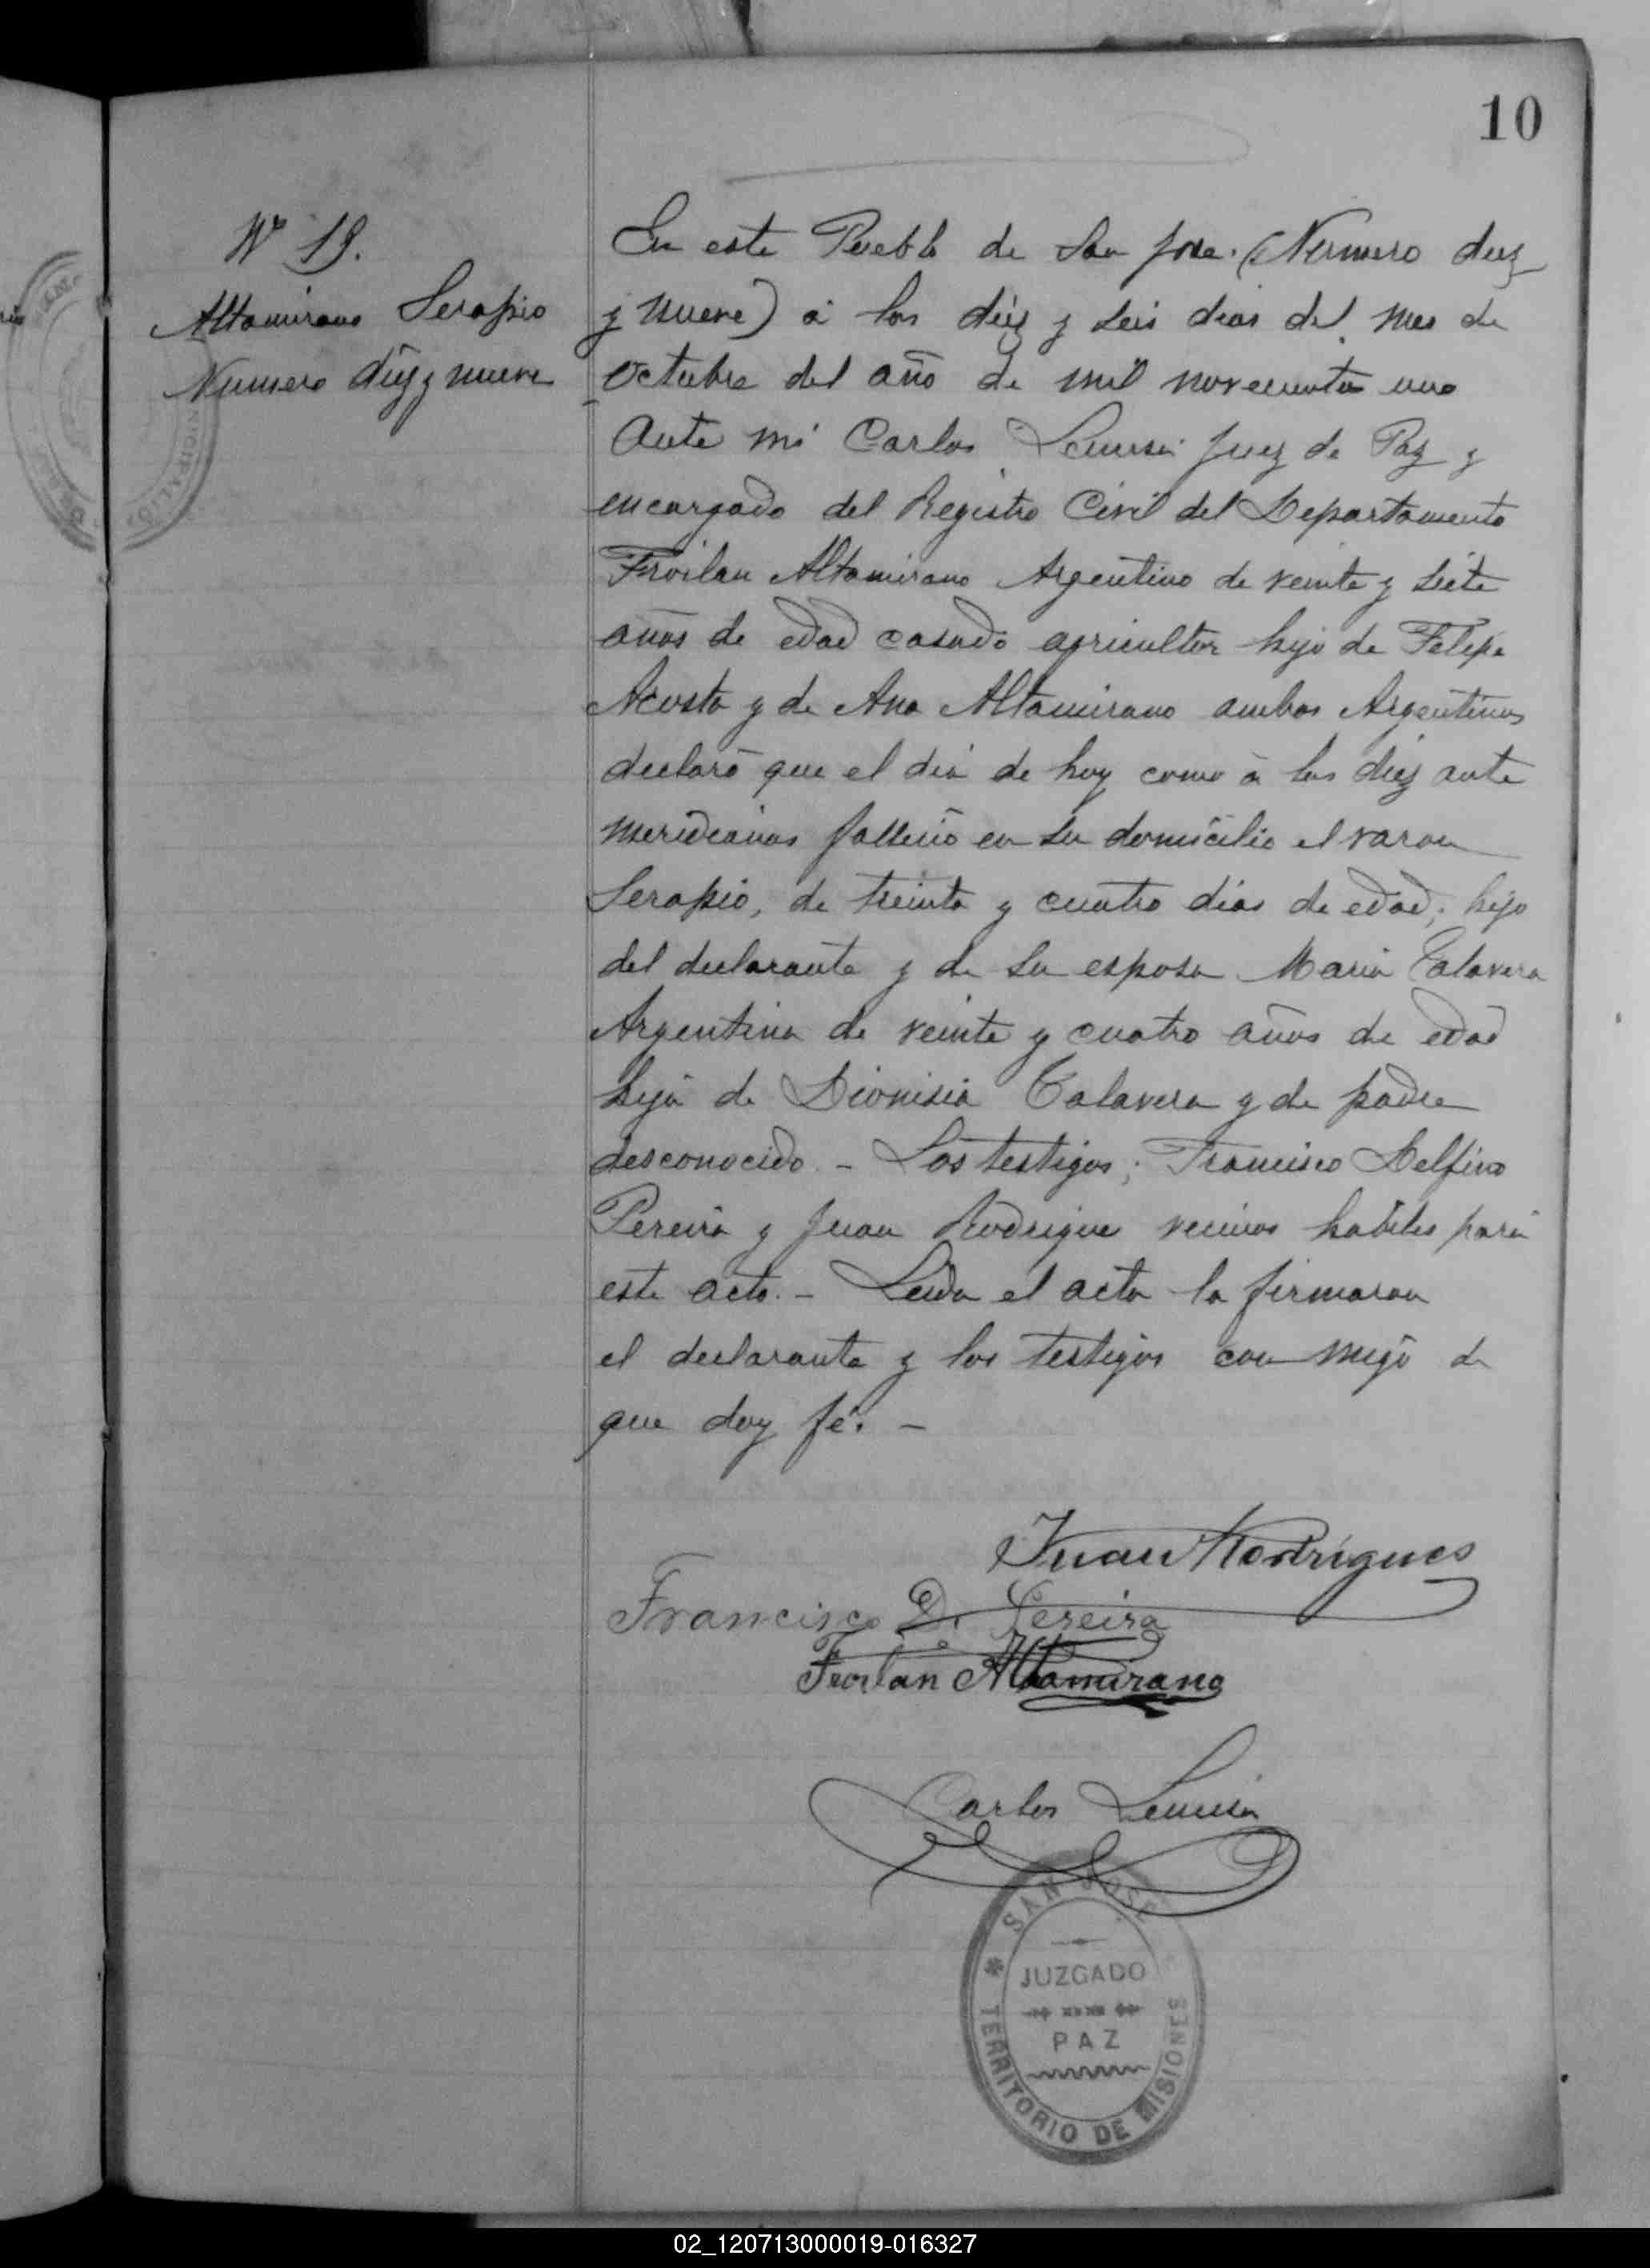 10
Nº 19.
Altamirano Serapio
Numero diez y nueve
En este Pueblo de San Jose. (Numero diez
y nueve) á los diez y seis dias del mes de
Octubre del año de mil novecientos uno
Ante mi Carlos Juez de Paz y
encargado del Registro Civil del Departamento
Froilan Altamirano Argentino de veinte y siete
años de edad casado agricultor hijo de Felipe
Acosta y de Ana Altamirano ambos Argentinos
declaró que el dia de hoy como á las diez ante
meridianas falleció en su domicilio el varon
Serapio, de treinta y cuatro dias de edad; hijo
del declarante y de su esposa Maria Talavera
Argentina de veinte y cuatro años de edad
hija de Dionisia Talavera y de padre
desconocido. - Los testigos; Francisco Delfino
Pereira y Juan Rodrigue vecinos habiles para
este acto. - Leida el acta la firmaron
el declarante y los testigos con migo de
que doy fé. -
Juan Rodrigues
Francisco D. Pereira
Froilan Altamirano
Carlos
SAN JOSE
JUZGADO
PAZ
TERRITORIO DE MISIONES
02_120713000019-016327